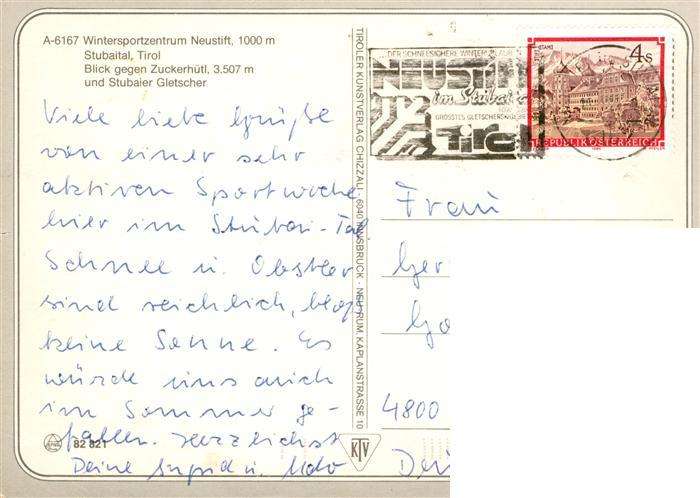 A-6167 Wintersportzentrum Neustift, 1000 m
Stubaital, Tirol
Blick gegen Zuckerhütl, 3.507 m
und Stubaier Gletscher
Viele liebe Grüße
von einer sehr
aktiven Sportwoche
hier im Stubai-Tal
Schnee u. Obstler
sind reichlich, bloß
keine Sonne. Es
würde uns auch
im Sommer ge-
fallen. Herzlichst
Deine Ingrid u. Udo
82 821
TIROLER KUNSTVERLAG CHIZZALI · 6040 INNSBRUCK · NEU-RUM, KAPLANSTRASSE 10
KTV
DER SCHNEESICHERE WINTER
NEUSTIFT
im Stubai
GRÖSSTES GLETSCHERSKI
Tirol
STAMS
4 S
REPUBLIK ÖSTERREICH
Frau
Ger
4800